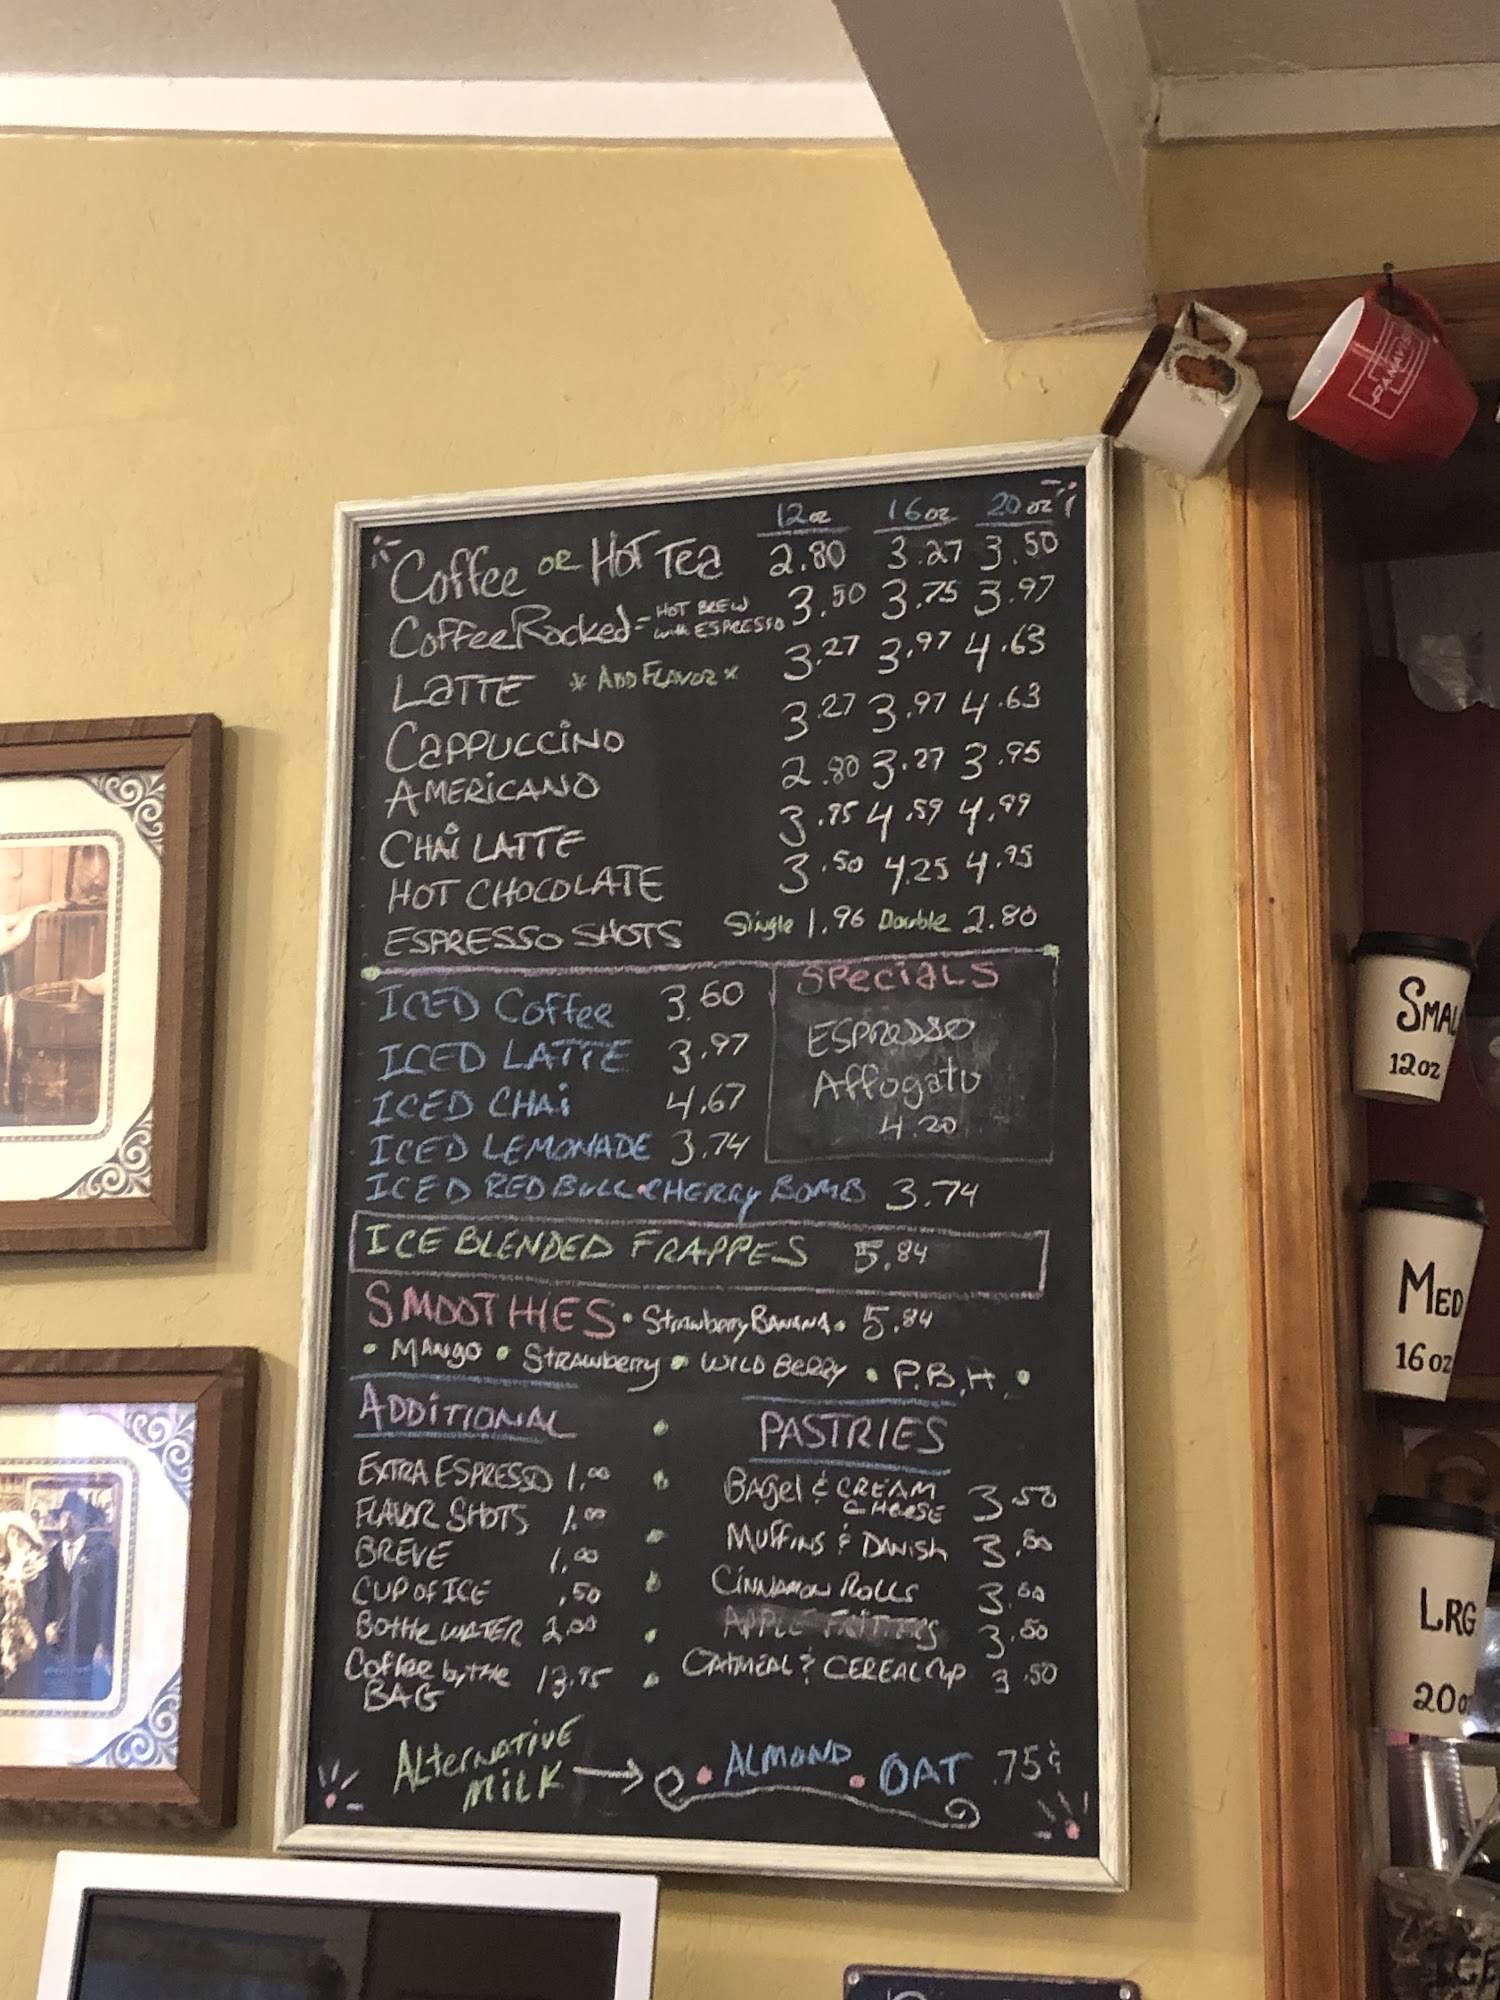 12oz 16oz 20oz
Coffee or Hot Tea 2.80 3.27 3.50
Coffee Rocked = HOT BREW with ESPRESSO 3.50 3.75 3.97
LATTE * ADD FLAVOR * 3.27 3.97 4.63
CAPPUCCINO 3.27 3.97 4.63
AMERICANO 2.80 3.27 3.95
CHAI LATTE 3.95 4.59 4.99
HOT CHOCOLATE 3.50 4.25 4.95
ESPRESSO SHOTS Single 1.96 Double 2.80
ICED Coffee 3.60
ICED LATTE 3.97
ICED CHAI 4.67
ICED LEMONADE 3.74
ICED RED BULL • CHERRY BOMB 3.74
SPECIALS
ESPRESSO
Affogato
4.20
ICE BLENDED FRAPPES 5.84
SMOOTHIES • Strawberry BANANA • 5.84
• MANGO • STRAWberry • WILD BERRY • P.B.H •
ADDITIONAL
EXTRA ESPRESSO 1.00
FLAVOR SHOTS 1.00
BREVE 1.00
CUP OF ICE .50
BOTTLE WATER 2.00
Coffee by the BAG 13.95
PASTRIES
BAGEL & CREAM CHEESE 3.50
MUFFINS & DANISH
CINNAMON ROLLS
APPLE FRITTERS
OATMEAL & CEREAL CUP 3.50
ALTERNATIVE MILK → • ALMOND • OAT .75¢
12oz
MED
16oz
LRG